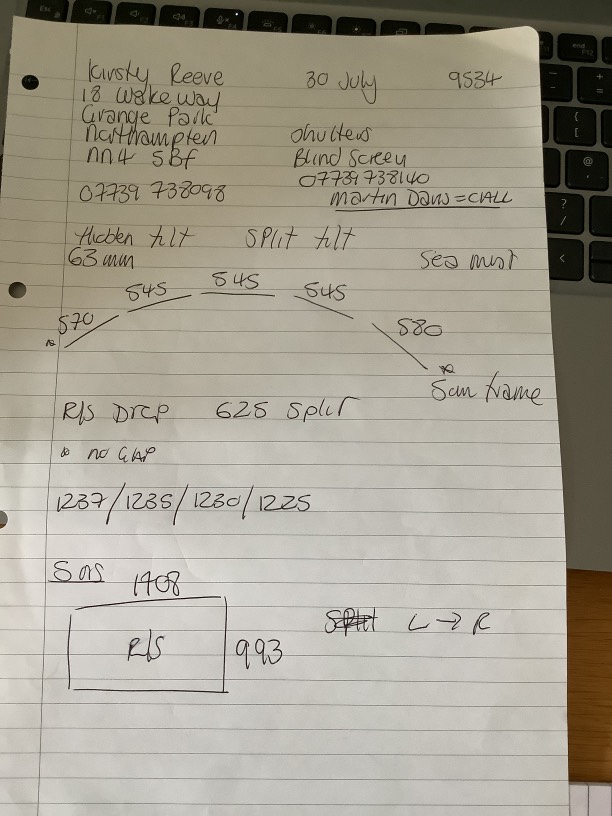 Kirsty Reeve 30 July 9534
18 Wake way
Grange Park
Northampton Shutters
NN4 5BF Blind Screen
07739 738098 07739738140
Martin Daws = CALL
Hidden tilt SPlit tilt
63mm Sea mist
545 545 545
570 580
5cm frame
R/S Drop 625 Split
* no GAP
1237/1235/1230/1225
1708
R/S 993 L → R